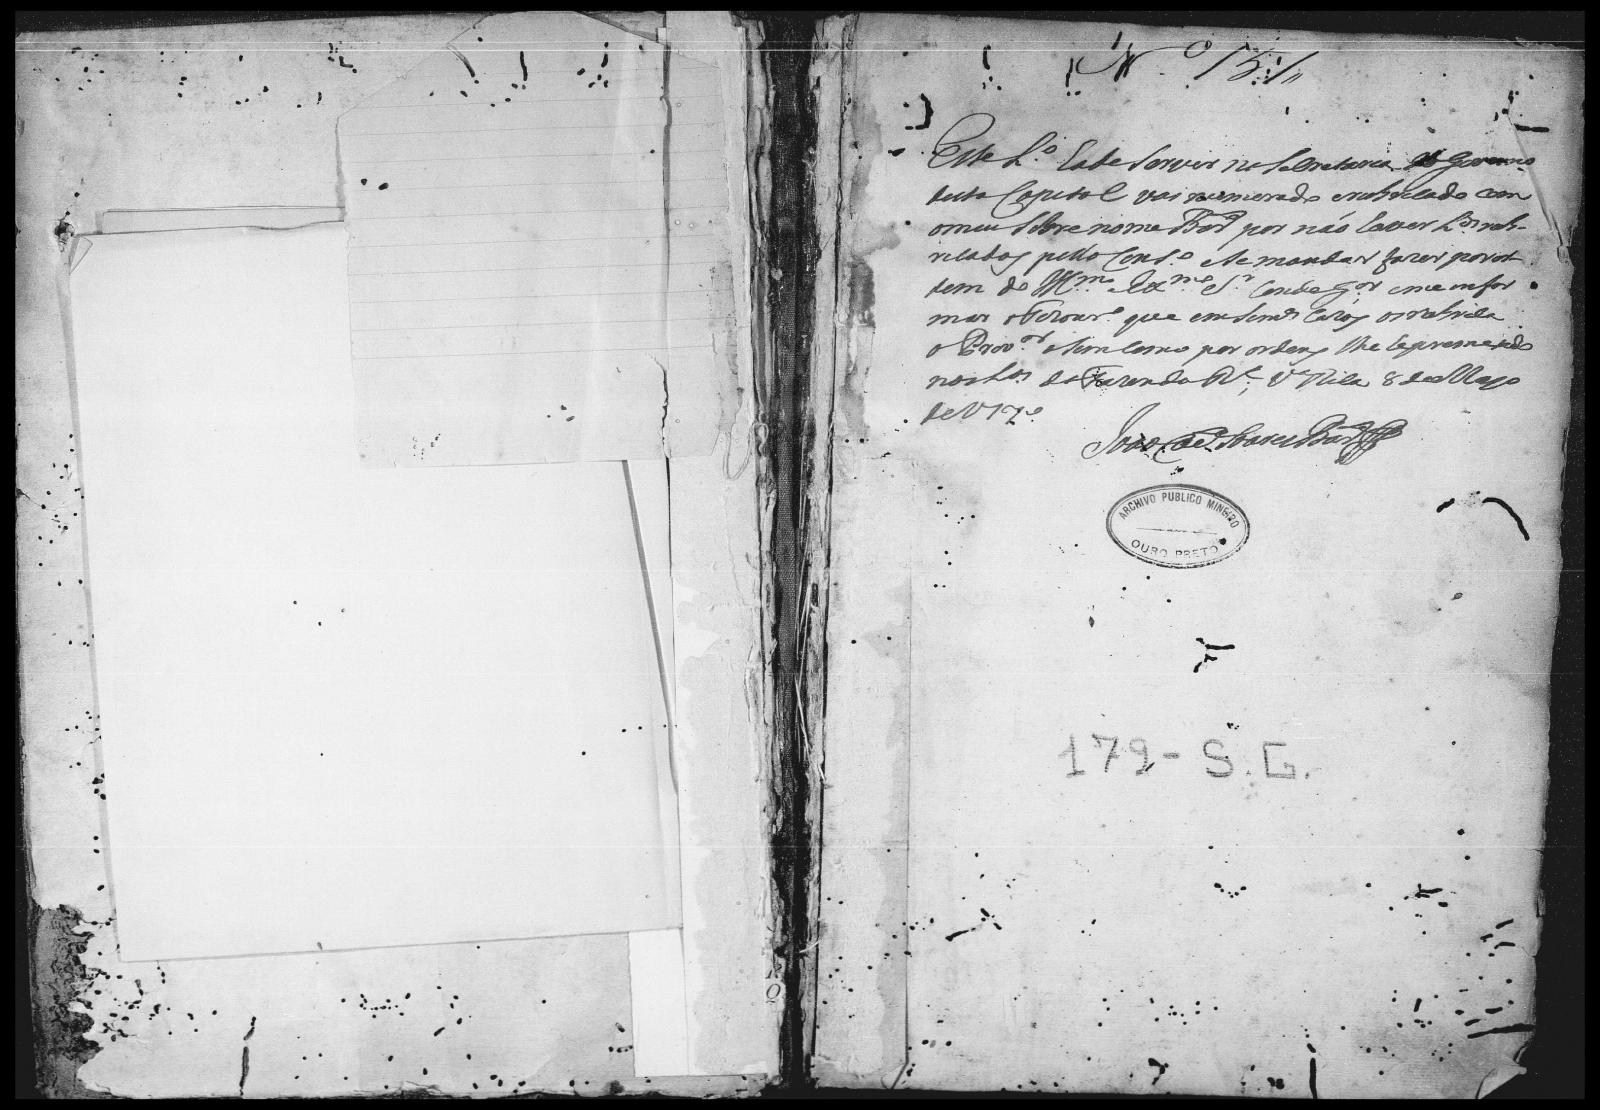 N.º 151
Este L.º hade servir na Secretaria do Governo
desta Capital vai numerado e rubricado com
o meu sobre nome Bar por não haver L.os rub-
ricados pello Cons.º e se mandar fazer por or
dem do Ill.mo e Ex.mo S.r Conde G.or e me infor
mar o que em Sem.es cazos os rubrica
o Prov.or asim como por ordens lhe he premetido
nos L.os da Fazenda R.l, V.a Rica 8 de Mayo
de
João Soares Bar
ARCHIVO PUBLICO MINEIRO
OURO PRETO
179 - S.G.